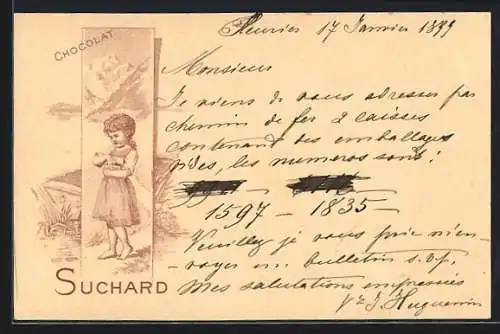 CHOCOLAT
SUCHARD
Fleurier 17 Janvier 1899
Monsieur
Je viens de vous adresser par
chemin de fer 2 caisses
contenant des emballages
vides, les numeros sont:
1597 – 1835 –
Veuillez je vous prie m'en-
voyer un bulletin s.v.p.
Mes salutations empressées
Vve J. Huguenin